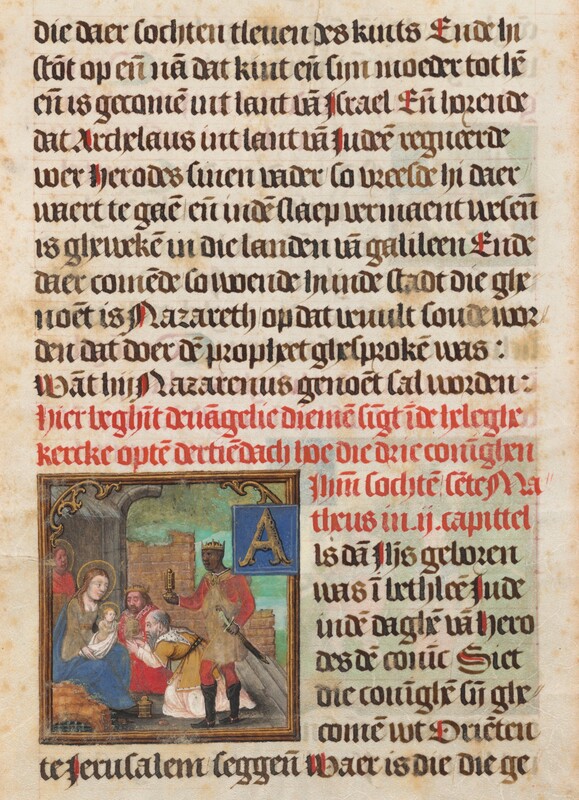 die daer sochten tleuen des kints Ende hi
stōt op eñ nā dat kint eñ sijn moeder tot hē
eñ is gecomē int lant vā Israel Eñ horende
dat Archelaus int lant vā Judeē regneerde
wer Herodes sinen vader so vreesde hi daer
waert te gaē eñ indē slaep vermaent weseñ
is ghewekē in die landen vā galileen Ende
daer comēde so woende hi inde stadt die ghe
noēt is Nazareth op dat veruult soude wor
den dat doer dē propheet ghesprokē was :
Wāt hij Nazarenus genoēt sal worden :
Hier beghīt deuāgelie diemē sīgt īde heleghe
kercke optē dertiēdach hoe die drie conīghen
Jhm̄ sochtē sēte Ma
theus in .ij. capittel
Als dā Jhs geboren
was ī bethleē Jude
indē daghē vā Hero
des dē conīc Siet
die conīghē sij ghe
comē wt Oriēten
te Jerusalem seggeñ Waer is die die ge